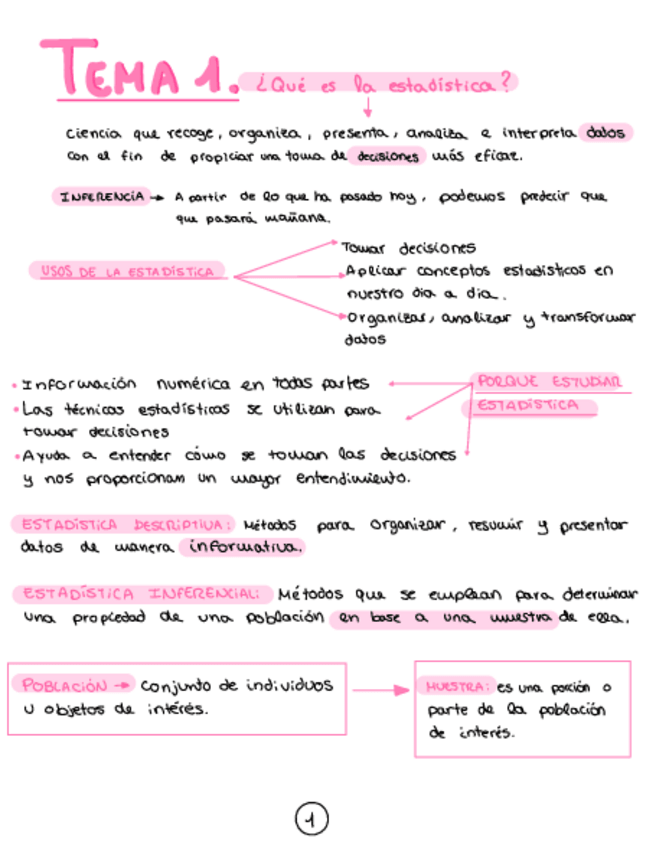 TEMA 1. ¿Qué es la estadística?
Ciencia que recoge, organiza, presenta, analiza e interpreta datos
con el fin de propiciar una toma de decisiones más eficaz.
INFERENCIA → A partir de lo que ha pasado hoy, podemos predecir que
que pasará mañana.
USOS DE LA ESTADÍSTICA
Tomar decisiones
Aplicar conceptos estadísticos en
nuestro día a día.
Organizar, analizar y transformar
datos
PORQUE ESTUDIAR
ESTADÍSTICA
• Información numérica en todas partes
• Las técnicas estadísticas se utilizan para
tomar decisiones
• Ayuda a entender cómo se toman las decisiones
y nos proporcionan un mayor entendimiento.
ESTADÍSTICA DESCRIPTIVA: Métodos para organizar, resumir y presentar
datos de manera informativa.
ESTADÍSTICA INFERENCIAL: Métodos que se emplean para determinar
una propiedad de una población en base a una muestra de ella.
POBLACIÓN → conjunto de individuos
u objetos de interés.
MUESTRA: es una porción o
parte de la población
de interés.
1